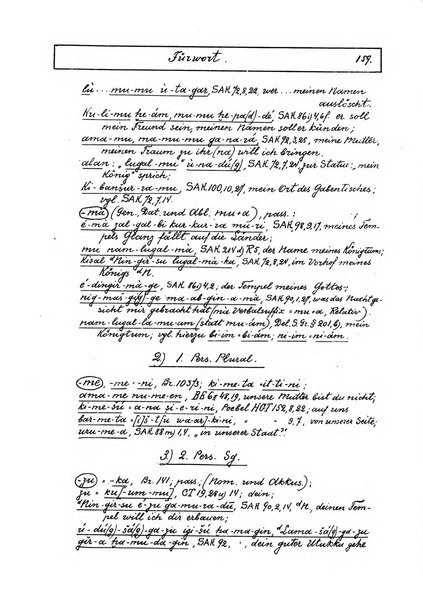 Fürwort.
159.
lù ... mu-mu ù-ta-gar, SAK 72,8,22, wer ... meinen Namen
auslöscht.
Ku-li-mu ḫe-ám, mu-mu ḫe-pa(d)-dé, SAK 86i) 4,6f. er soll
mein Freund sein, meinen Namen soll er künden;
ama-mu, ma-mu-mu ga-na-, SAK 72,3,25, meine Mutter,
meinen Traum zu ihr(na) will ich bringen.
alan: „lugal-mu" ù-na-dú(g), SAK 72,7,24 zur Statue: „mein
König" sprich;
Ki-banšur-ra-mu, SAK 100,10,27, mein Ort des Gabentisches;
vgl. SAK 72,7,14.
-mà (Gen., Dat. und Abl. mu-a), pass.:
é-ma zal-gal-bi kur-kur-ra mu-ri, SAK 98,9,17, meines Tem-
pels Glanz fällt auf die Länder;
mu nam-lugal-má, SAK 214d) R5, der Name meines Königtums;
Kisal dNin-gir-su lugal-mà-ka, SAK 72,8,24, im Vorhof meines
Königs dN.
é-dingir-mà-ge, SAK 86i) 4,2, der Tempel meines Gottes;
nig-maš-gi(g)-ge ma-ab-gin-a-mà, SAK 90,1,27, was das Nachtge-
sicht mir gebracht hat (mà Verbalsuffix = mu-a, Relativ).
nam-lugal-la-mu-um (statt mu-ám), Del. S. Gr. § 201,6), mein
Königtum; vgl. hierzu bi-im-bi-ám; ni-im-ni-ám.
2) 1. Pers. Plural.
-me, -me -ni, Br. 10373; ki-me-ta = it-ti-ni;
ama-me nu-me-en, BE 6g 48,19, unsere Mutter bist du nicht;
ki-me-šù = a-na ṣi-e-ri-ni, Poebel HGT 152,8,22; auf uns
bar-me-ta = [i]š-t[u wa-ar]-ki-ni, " 9,7, von unserer Seite;
uru-me-a, SAK 88 1,4, „in unserer Stadt".
3) 2. Pers. Sg.
-zu = -ka, Br. 141; pass.; (Nom. und Akkus.)
zu = ku[-um-mu], CT 19,28 14; dein;
dNin-gir-su é-zu ga-mu-ra-dù, SAK 90,2,14, dN, deinen Tem-
pel will ich dir erbauen;
ù-dú(g)-šá(g)-ga-zu igi-šù ḫa-ma-gin, dLama-šá(g)-ga-zu
gir-a ḫa-mu-da-gin, SAK 92, dein guter Utukku gehe